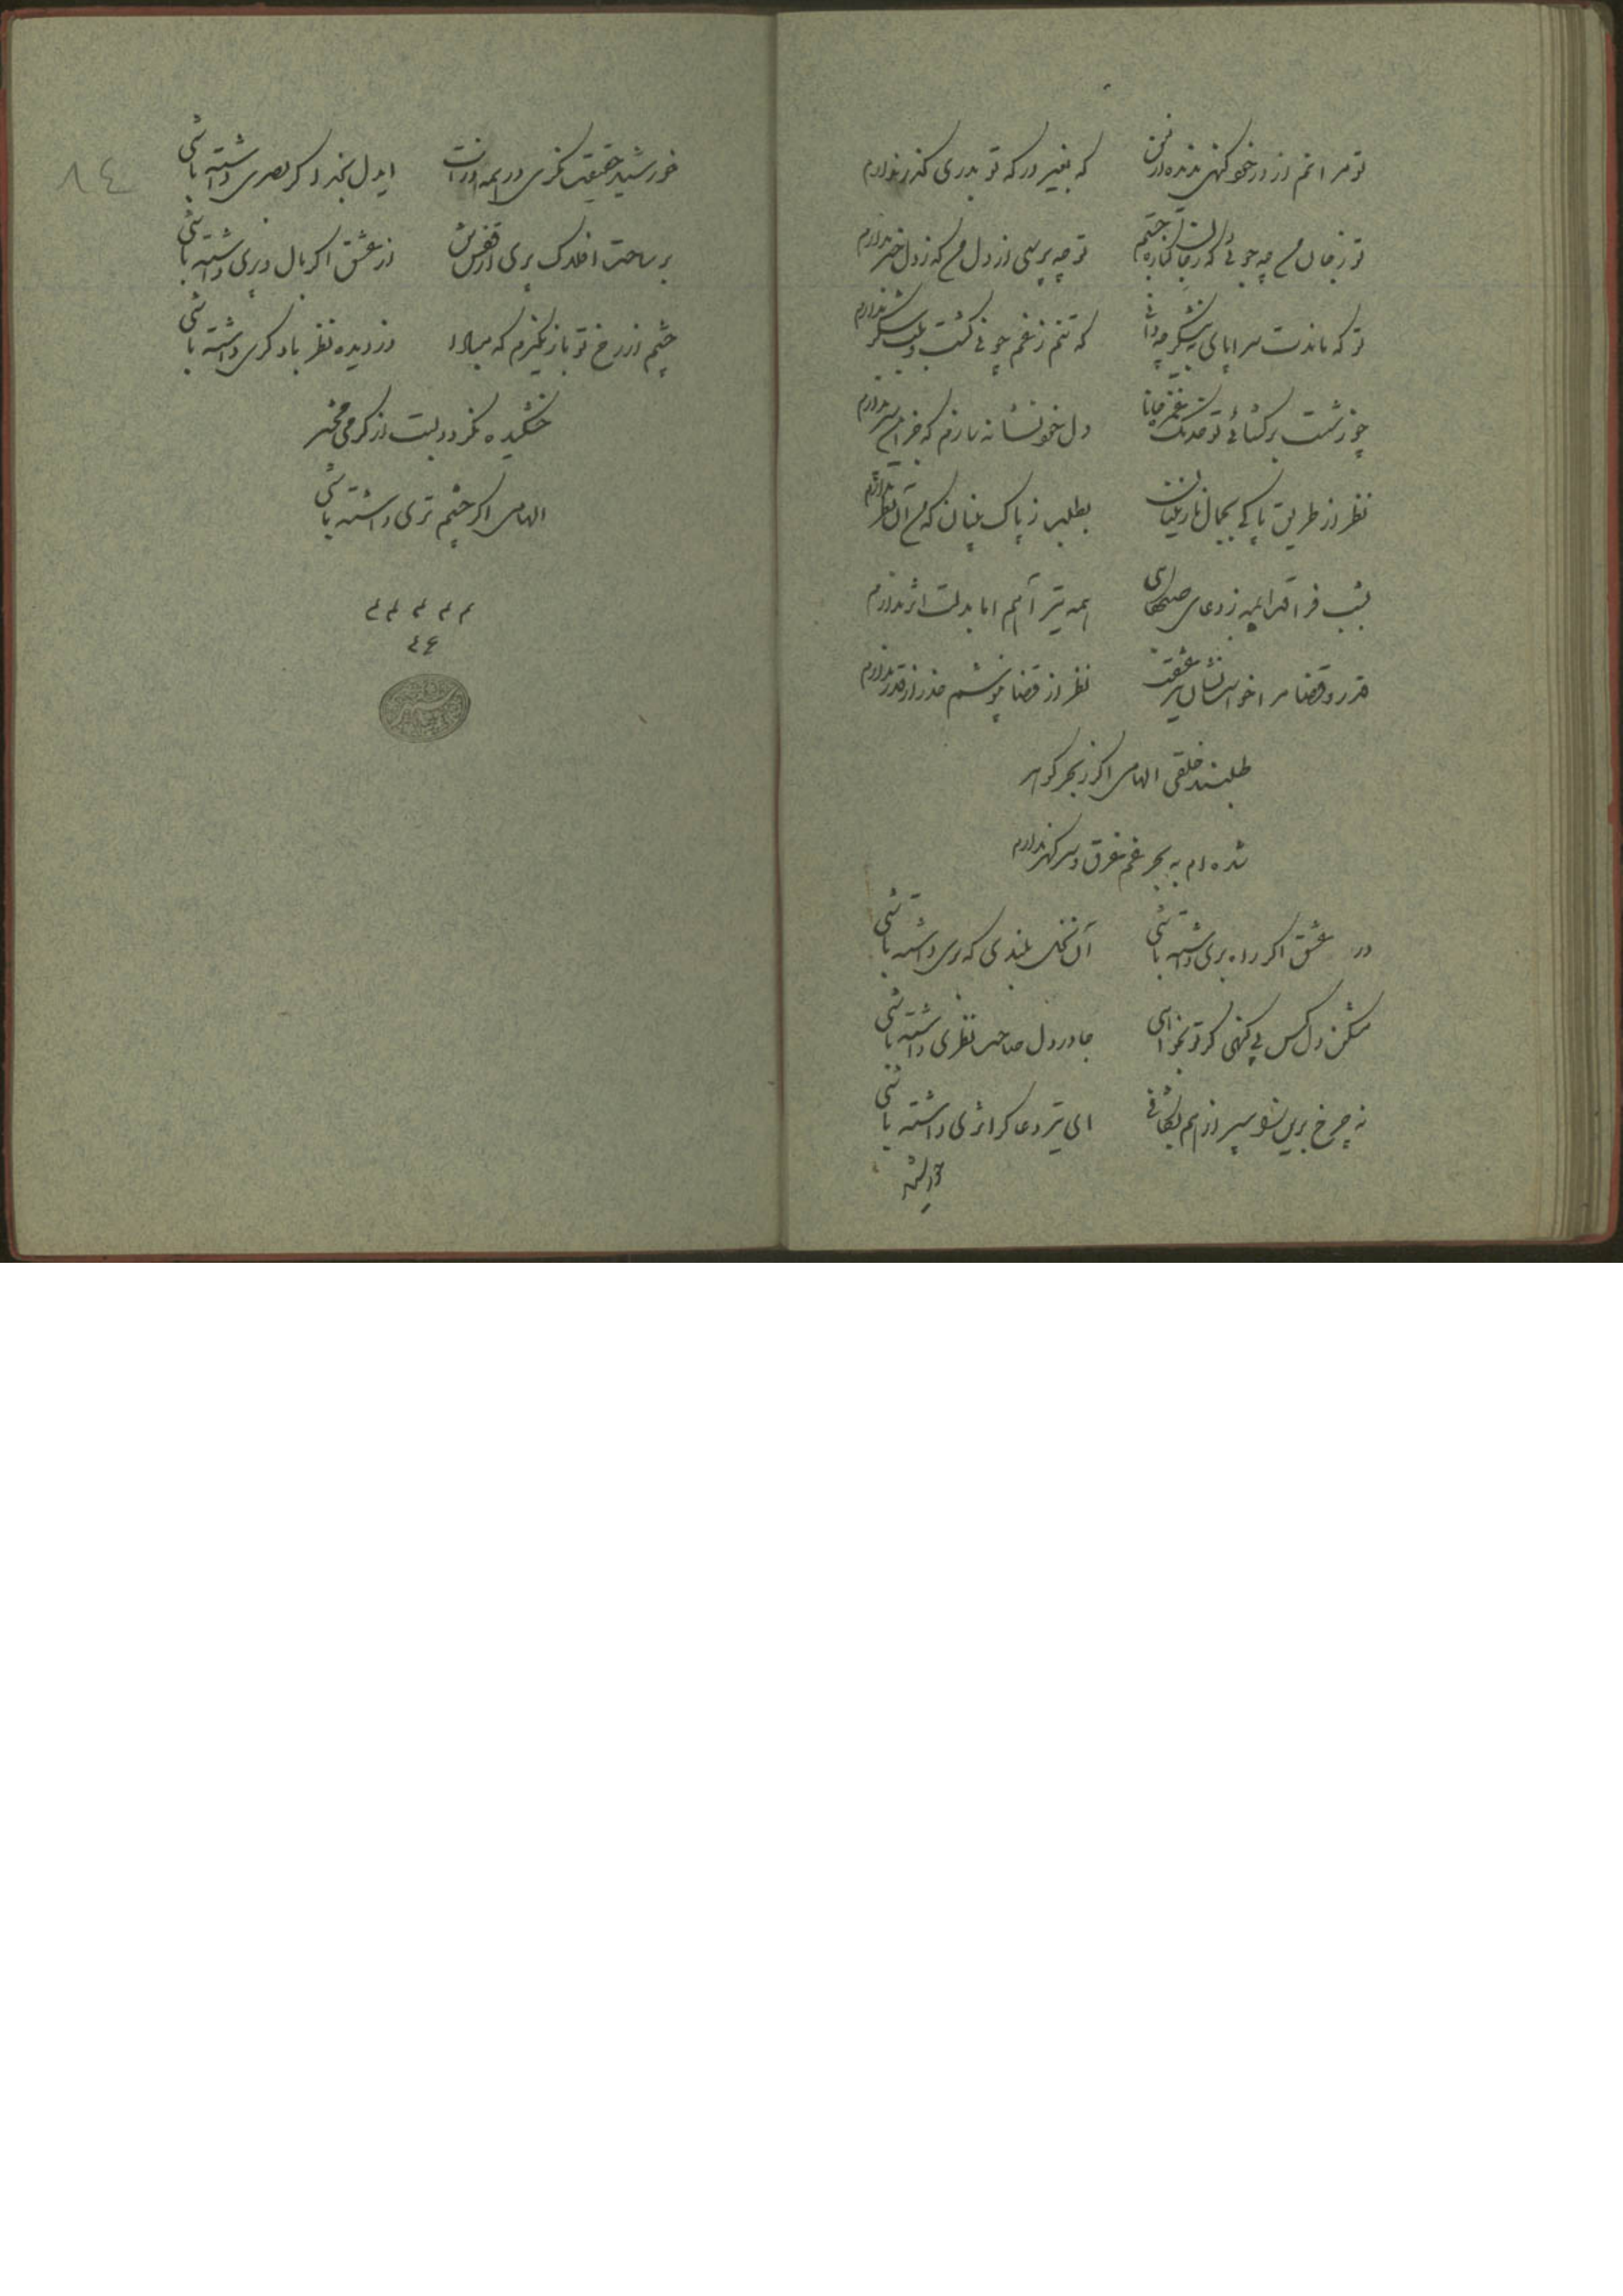 تو مرانم از در خو کهی بنده
که بغیر درکه تو بدری کذر ندارم
تو زجان من چه جوئی که زجان
تو چه پرسی از دل من که ز دل خبر ندارم
تو که ماندت سراپای به شکر چه دانی
که تنم ز غم چو نی کشت و بلب شکر ندارم
چو زشست برکشائی تو خدنک غمزه جانا
دل خو نشانه سازم که جز این سپر ندارم
نظر از طریق پاکی بجمال نازنینان
بطلب ز پاک بینان که من آن نظر ندارم
بشب فراقت ایمه ز دعای صبحکاهی
همه تیر آهم اما بدلت اثر ندارم
قدر و قضا مرا خواست نشان تیر عشقت
نظر از قضا نپوشم حذر از قدر ندارم
طلبند خلقی الهامی اکر ز بحر کوهر
شده ام به بحر غم غرق و سر کهر ندارم
در عشق اکر راه بری داشته باشی
آن نخل بلندی که بری داشته باشی
مشکن دل کس بی کنهی کر تو بخواهی
جا در دل صاحب نظری داشته باشی
نه چرخ برین شو سپر از هم بشکافی
ای تیر دعا کر اثری داشته باشی
خورشید
خورشید حقیقت نکری در همه ذرات
ایدل بخدا کر بصری داشته باشی
بر ساحت افلاک پری از قفس تن
از عشق اکر بال و پری داشته باشی
چشم از رخ تو باز نکیرم که مبادا
دزدیده نظر با دکری داشته باشی
خشکیده نکردد لبت از کرمی محشر
الهامی اکر چشم تری داشته باشی
م م م م م
٤٦
٨٤